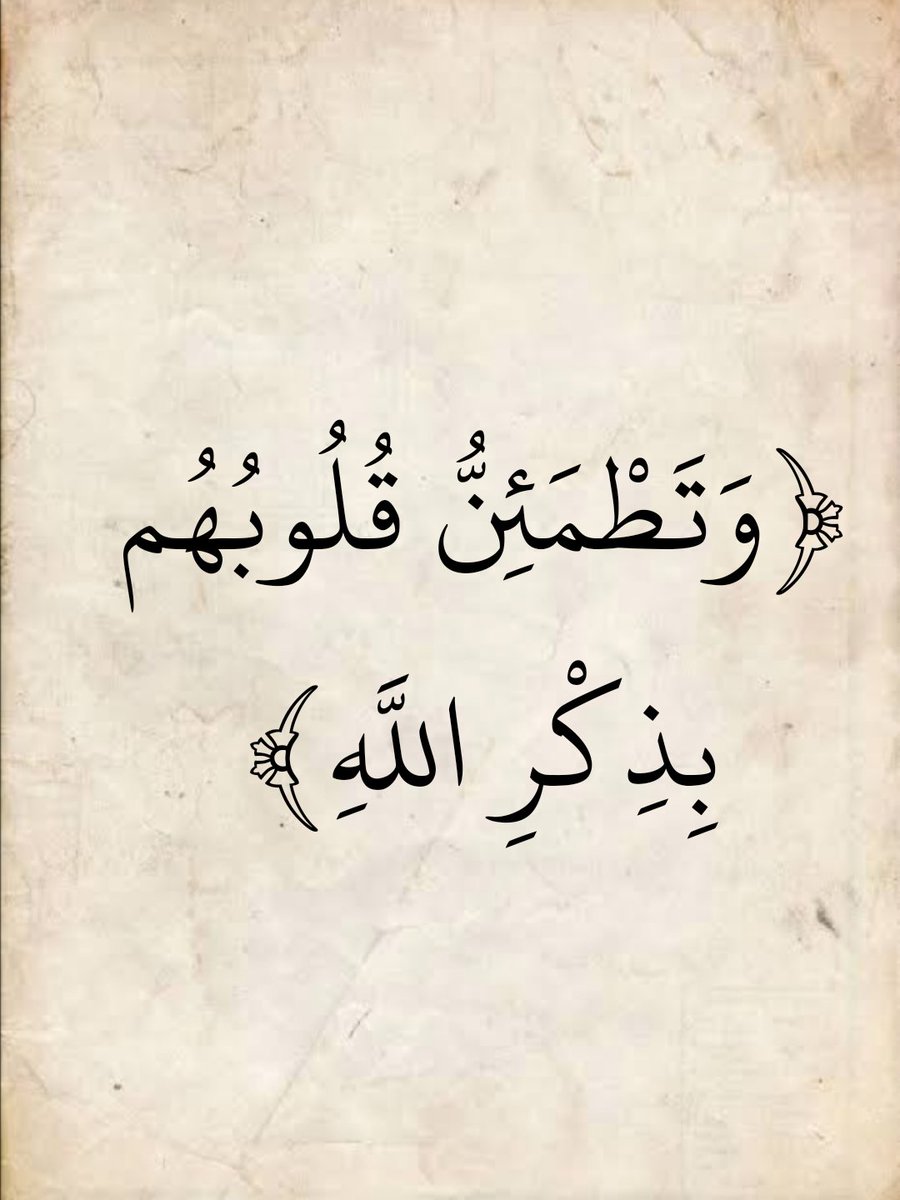 ﴿وَتَطْمَئِنُّ قُلُوبُهُم
بِذِكْرِ اللَّهِ﴾